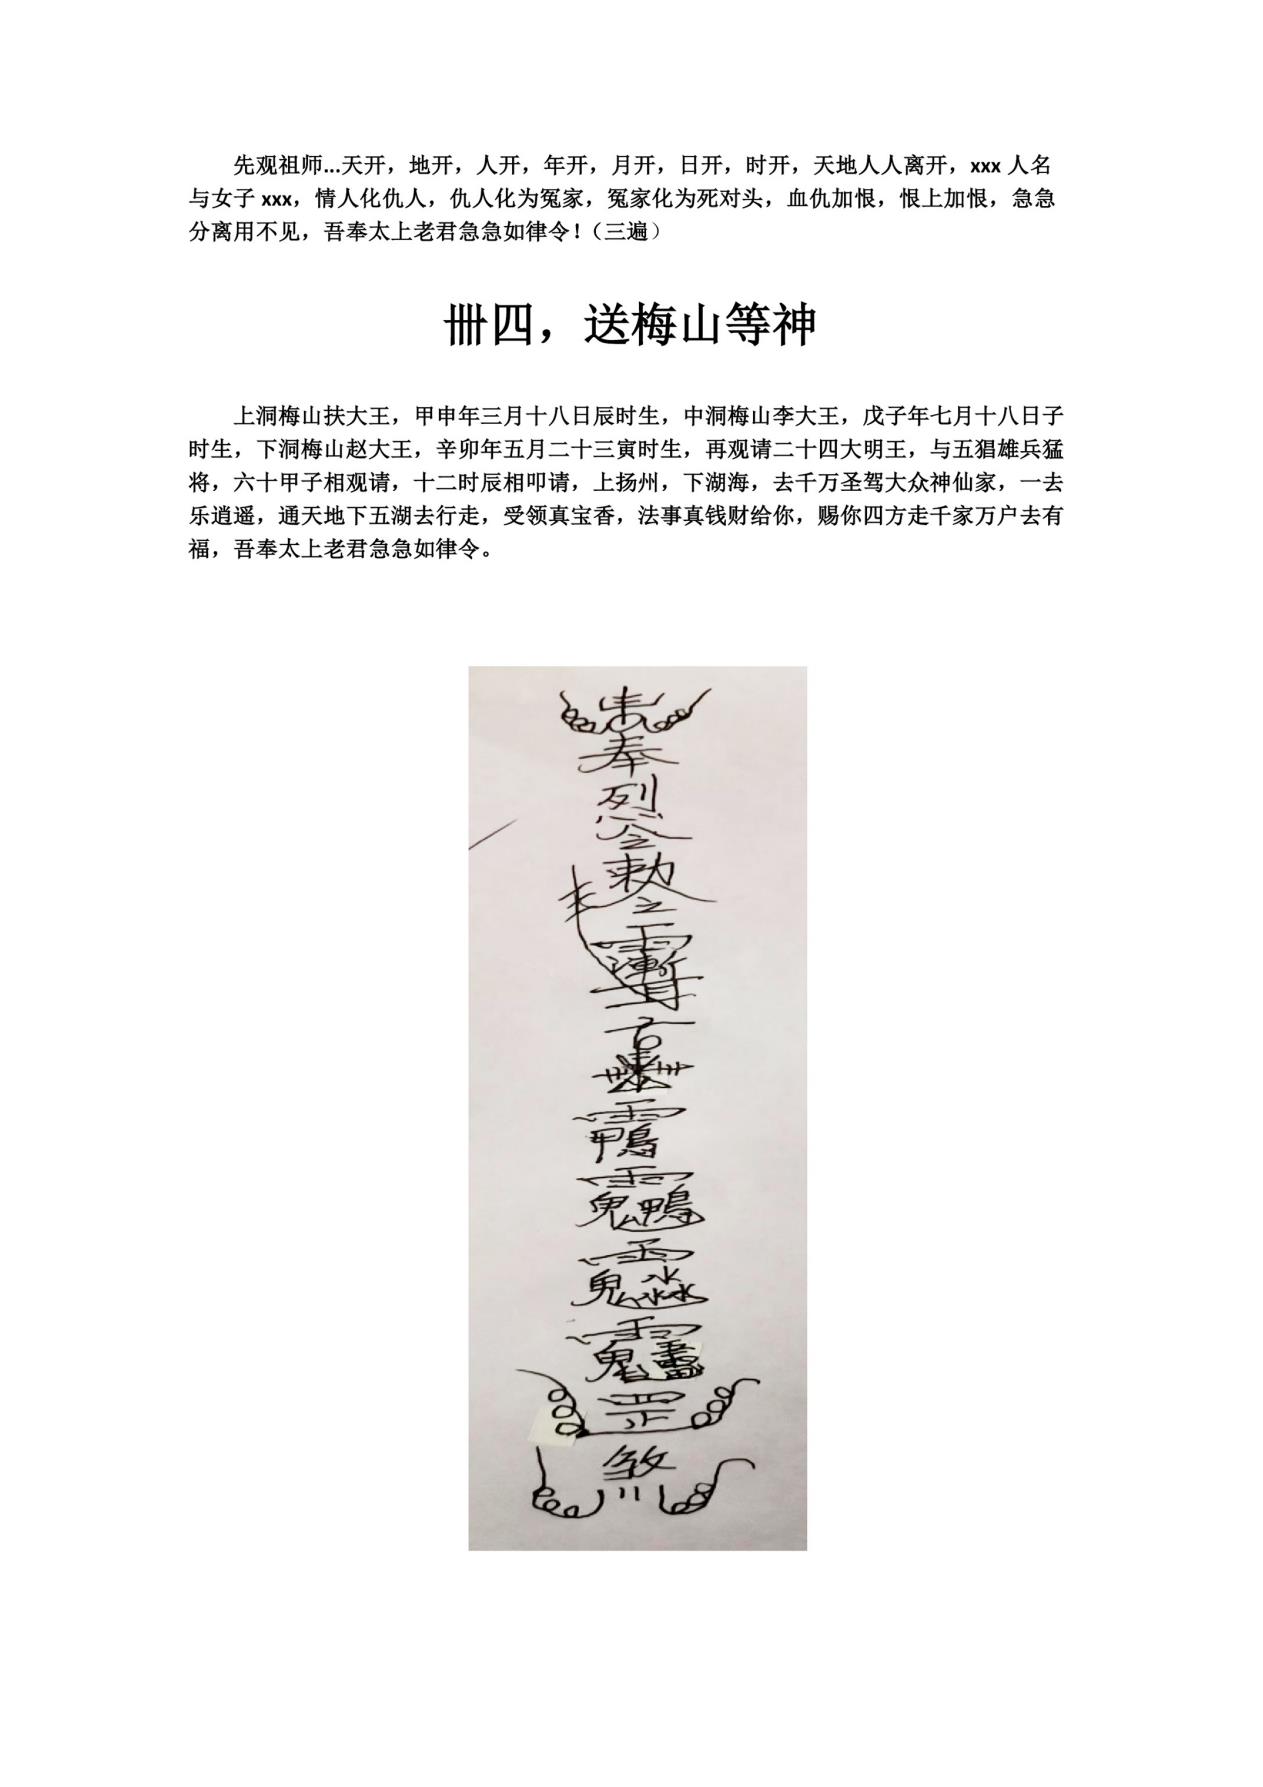 先观祖师...天开，地开，人开，年开，月开，日开，时开，天地人人离开，xxx 人名
与女子 xxx，情人化仇人，仇人化为冤家，冤家化为死对头，血仇加恨，恨上加恨，急急
分离用不见，吾奉太上老君急急如律令！（三遍）
卌四，送梅山等神
上洞梅山扶大王，甲申年三月十八日辰时生，中洞梅山李大王，戊子年七月十八日子
时生，下洞梅山赵大王，辛卯年五月二十三寅时生，再观请二十四大明王，与五猖雄兵猛
将，六十甲子相观请，十二时辰相叩请，上扬州，下湖海，去千万圣驾大众神仙家，一去
乐逍遥，通天地下五湖去行走，受领真宝香，法事真钱财给你，赐你四方走千家万户去有
福，吾奉太上老君急急如律令。
奉
敕
罡
煞